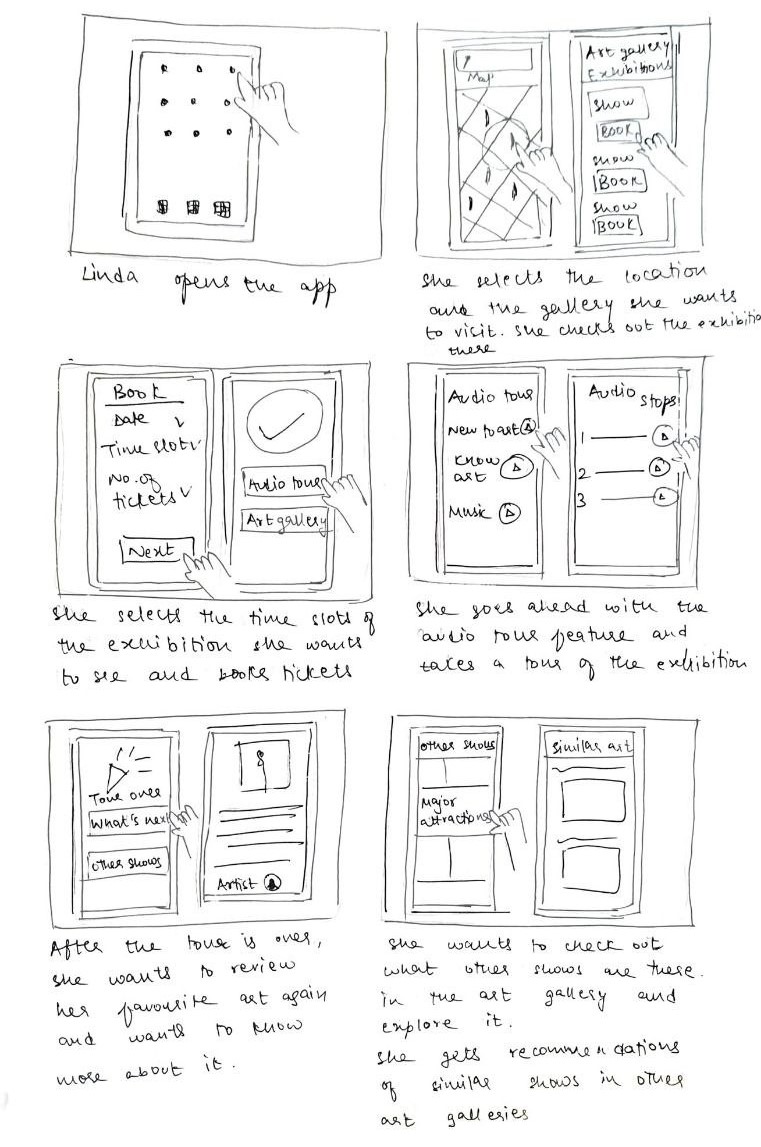 Map
Art gallery
Exhibitions
Show
BOOK
Show
BOOK
Show
BOOK
Linda opens the app
She selects the location
and the gallery she wants
to visit. She checks out the exhibitio
there
Book
Date
Time slot
No. of
tickets
Next
Audio tour
Art gallery
She selects the time slots of
the exhibition she wants
to see and books tickets
Audio tour
New to art
Know
art
Music
Audio stops
1
2
3
She goes ahead with the
audio tour feature and
takes a tour of the exhibition
Tour over
What's next
other shows
Artist
After the tour is over,
she wants to review
her favourite art again
and wants to know
more about it.
other shows
Major
attractions
Similar art
She wants to check out
what other shows are there.
in the art gallery and
explore it.
She gets recommendations
of similar shows in other
art galleries